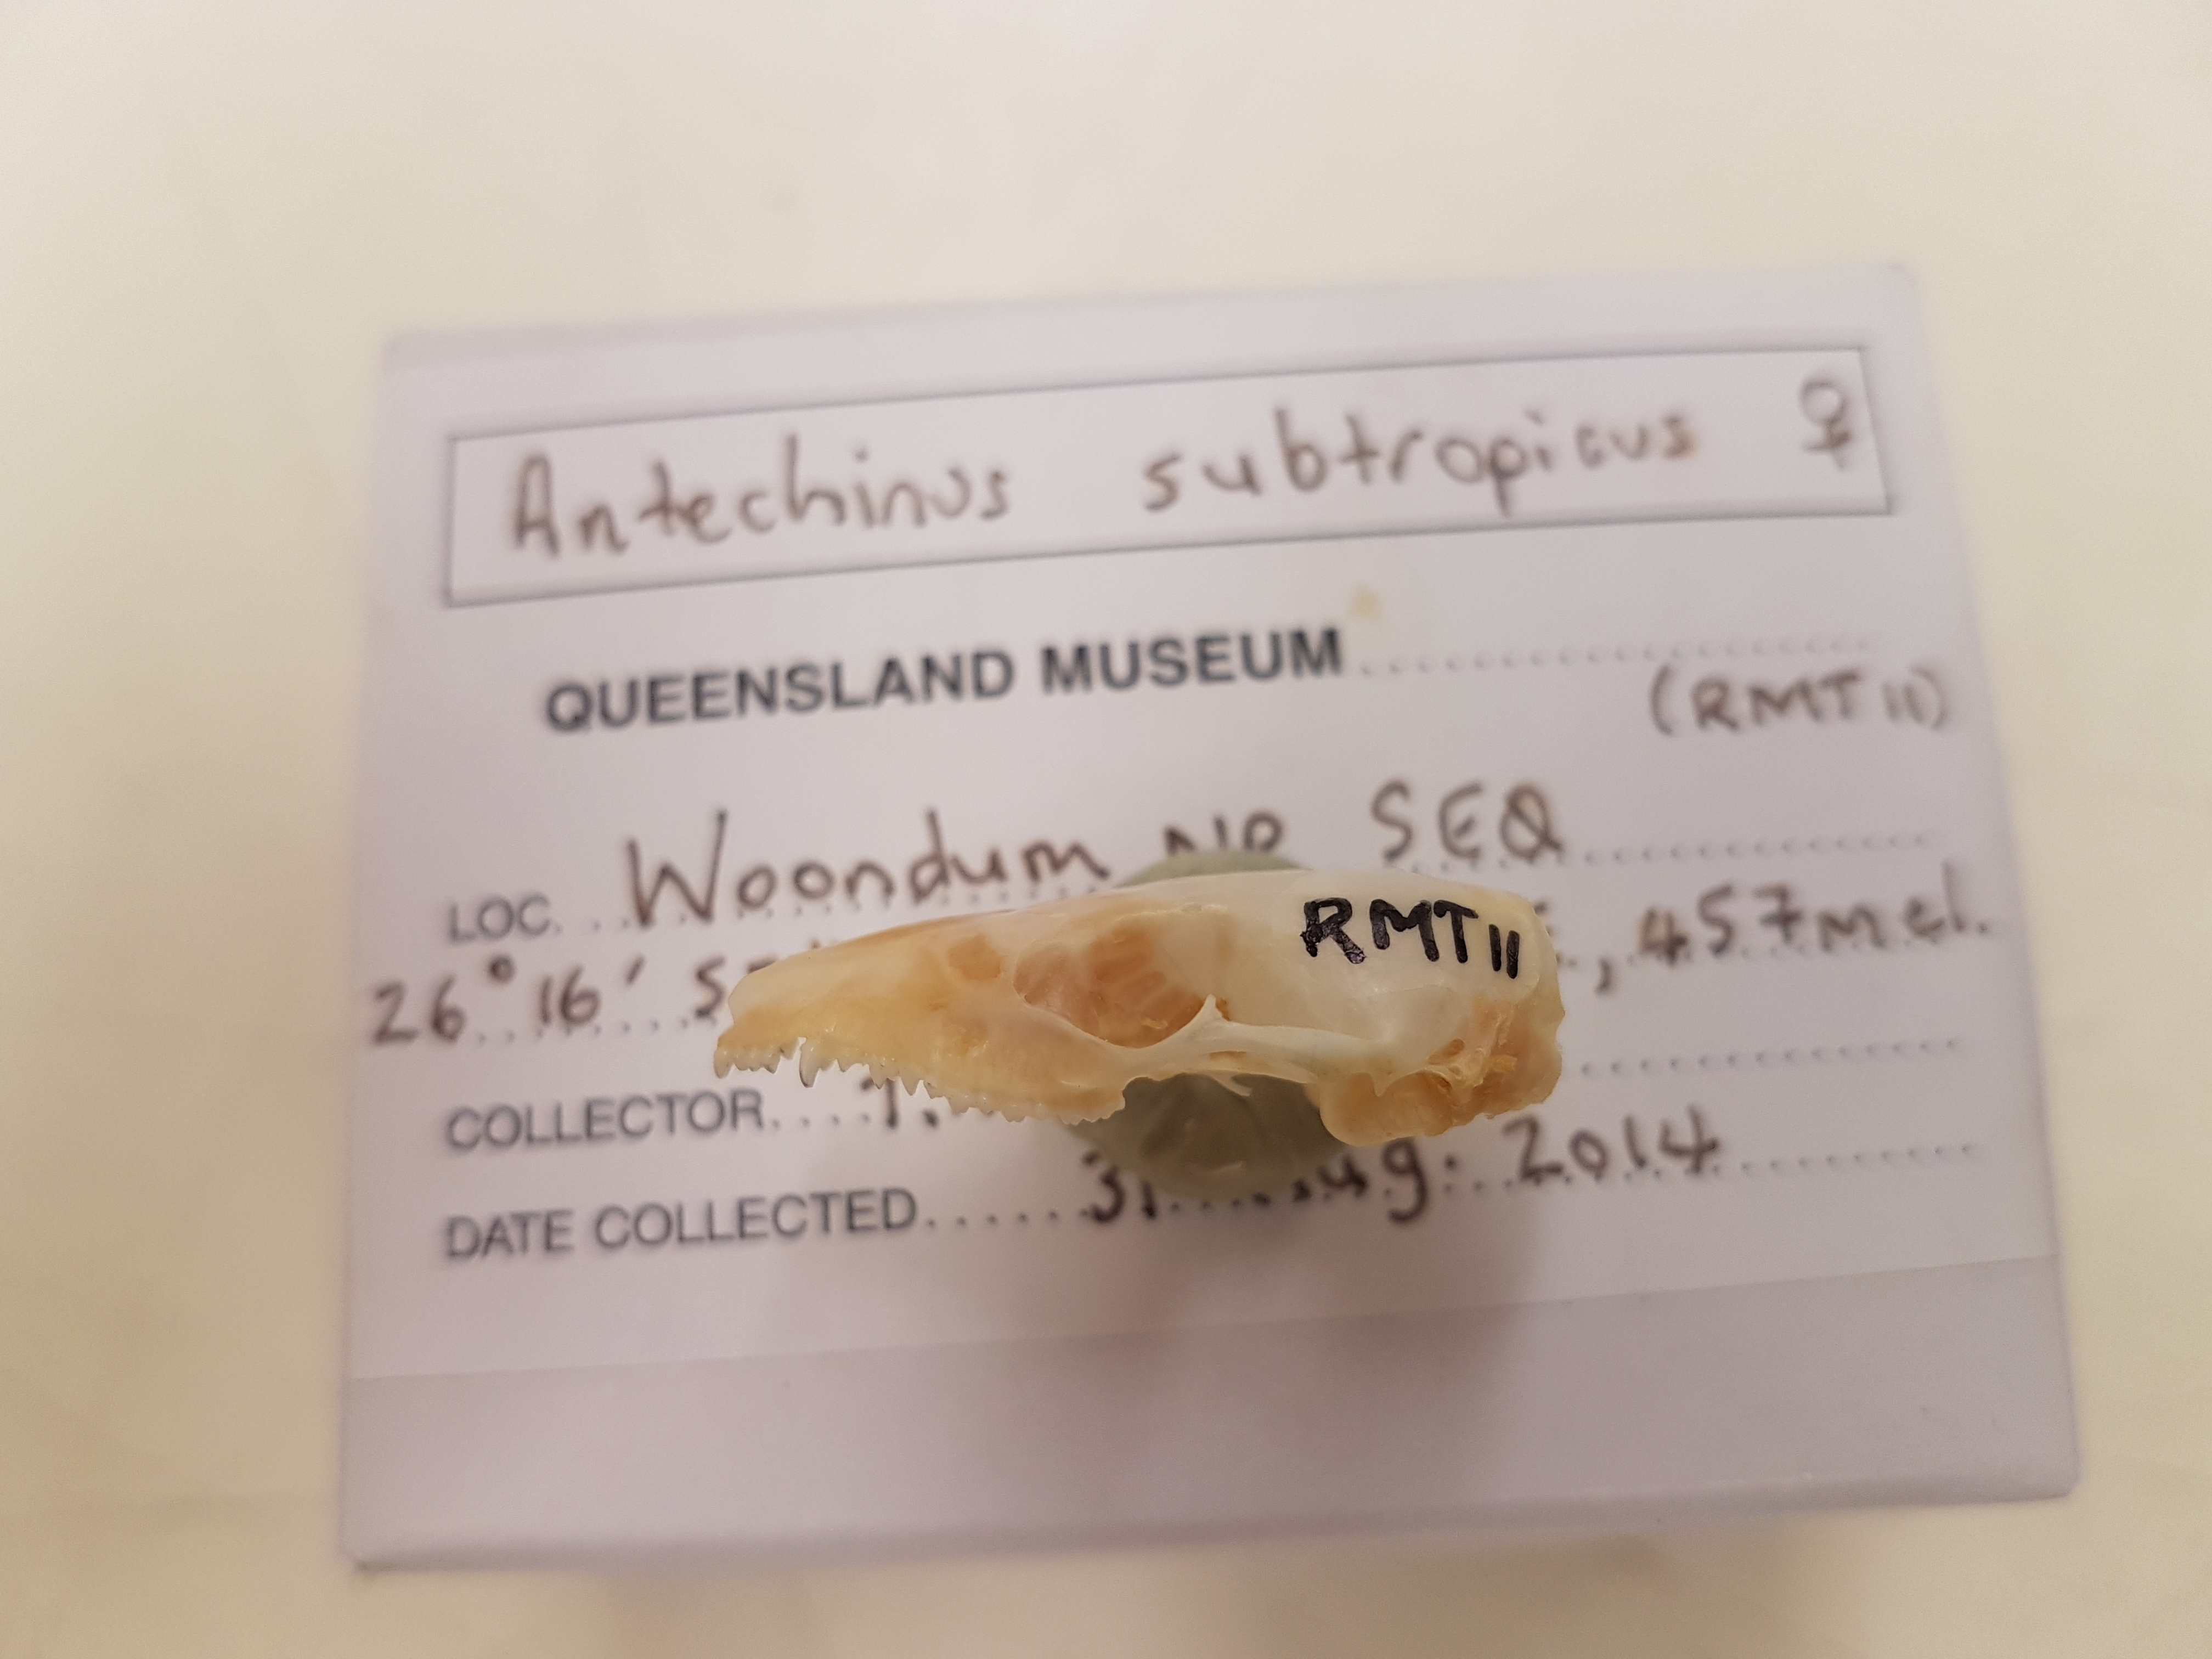 Antechinus subtropicus ♀
QUEENSLAND MUSEUM (RMT 11)
LOC. Woondum NP SEQ
26° 16' S , 457m el.
COLLECTOR
DATE COLLECTED 31 Aug. 2014
RMT 11